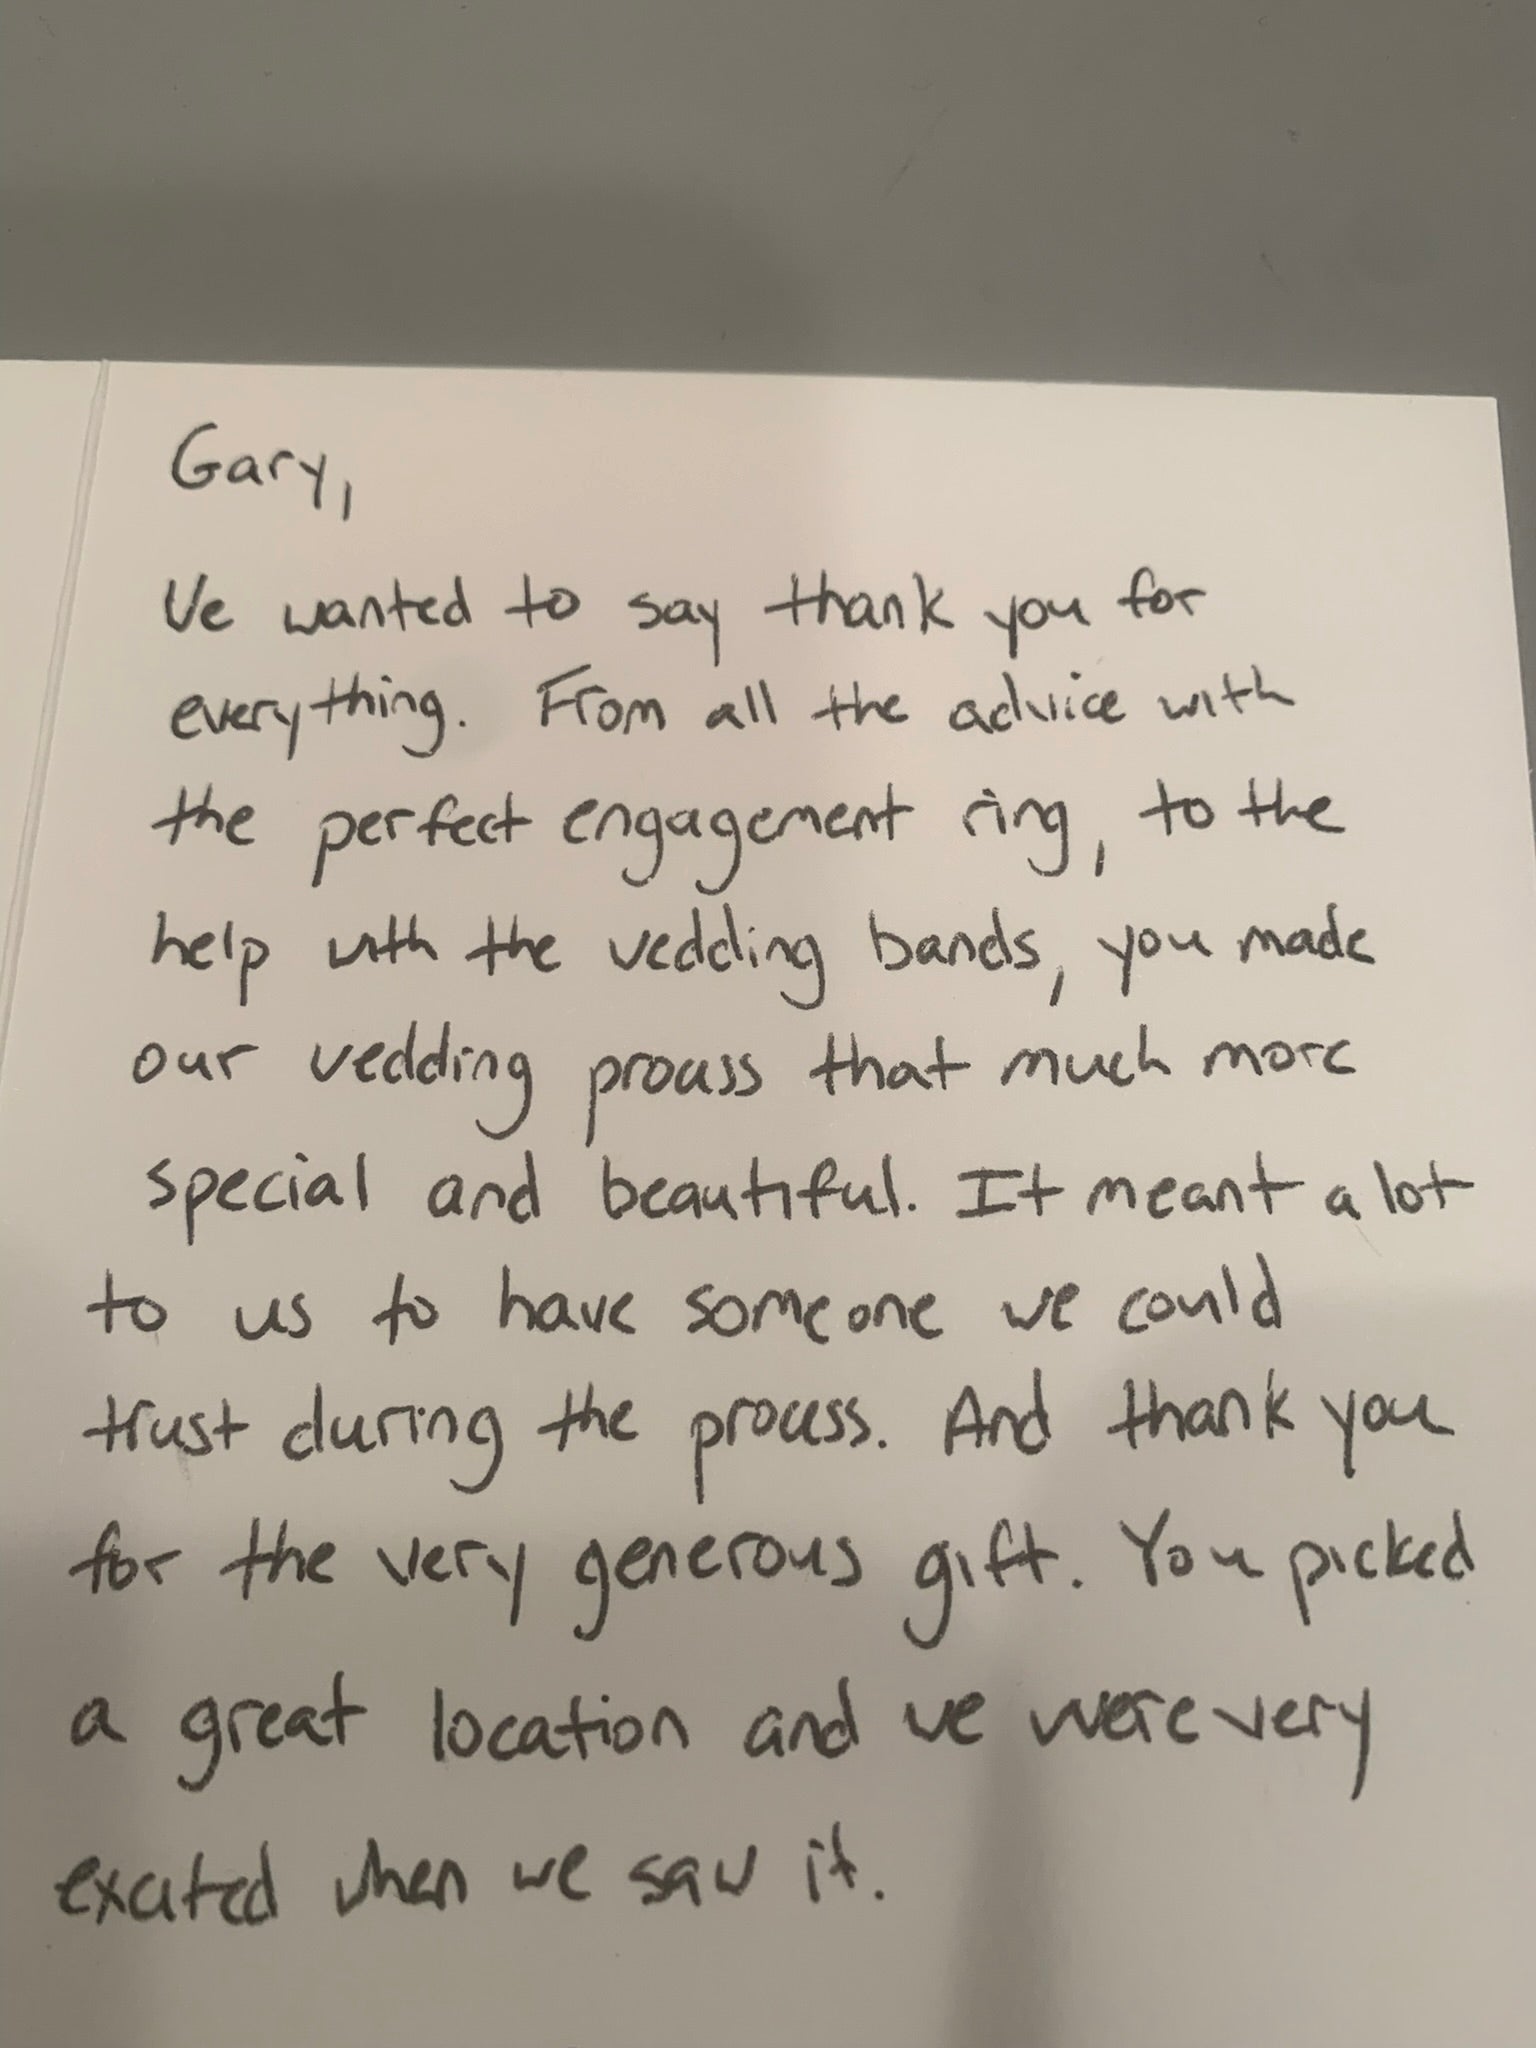 Gary,
We wanted to say thank you for
everything. From all the advice with
the perfect engagement ring, to the
help with the wedding bands, you made
our wedding process that much more
special and beautiful. It meant a lot
to us to have someone we could
trust during the process. And thank you
for the very generous gift. You picked
a great location and we were very
excited when we saw it.